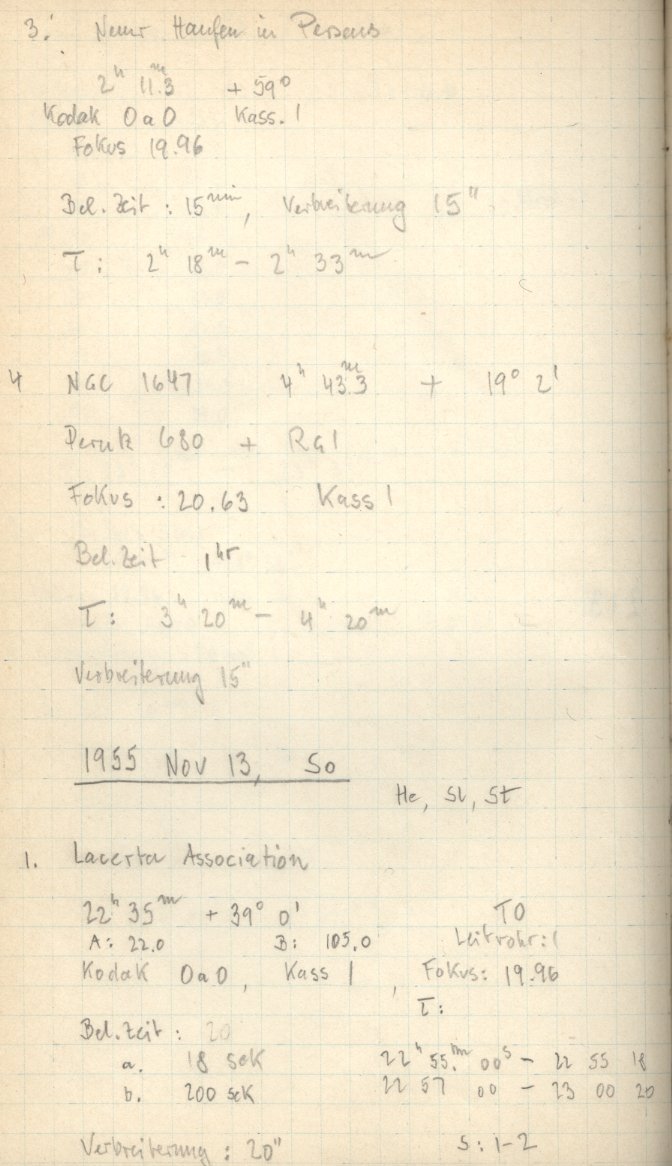 3. Neuer Haufen in Perseus
2h 11m.3 + 59°
Kodak OaO Kass. 1
Fokus 19.96
Bel. Zeit : 15 min, Verbreiterung 15"
T : 2h 18m - 2h 33m
4 NGC 1647 4h 43m.3 + 19° 2'
Perutz 680 + RG1
Fokus : 20.63 Kass 1
Bel. Zeit 1hr
T : 3h 20m - 4h 20m
Verbreiterung 15"
1955 Nov 13, So
He, Sl, St
1. Lacerta Association
22h 35m + 39° 0' TO
A: 22.0 B: 105.0 Leitrohr: 1
Kodak OaO, Kass 1, Fokus: 19.96
T:
Bel. Zeit : 20
a. 18 sek 22h 55.m 00s - 22 55 18
b. 200 sek 22 57 00 - 23 00 20
Verbreiterung : 20" S: 1-2